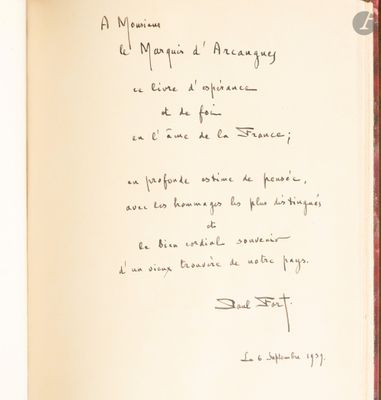 A Monsieur
le Marquis d'Arcangues
ce livre d'espérance
et de foi
en l'âme de la France;
en profonde estime de pensée,
avec les hommages les plus distingués
et
le bien cordial souvenir
d'un vieux trouvère de notre pays.
Paul Fort.
Le 6 Septembre 1939.